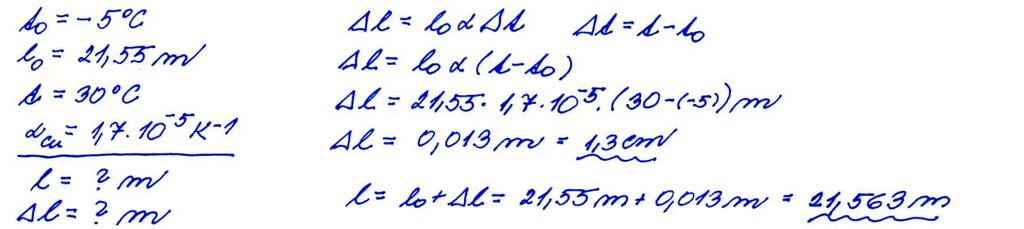 t₀ = -5°C
l₀ = 21,55 m
t = 30°C
α_Cu = 1,7·10⁻⁵ K⁻¹
l = ? m
Δl = ? m
Δl = l₀ α Δt    Δt = t - t₀
Δl = l₀ α (t - t₀)
Δl = 21,55 · 1,7 · 10⁻⁵ · (30 - (-5)) m
Δl = 0,013 m = 1,3 cm
l = l₀ + Δl = 21,55 m + 0,013 m = 21,563 m